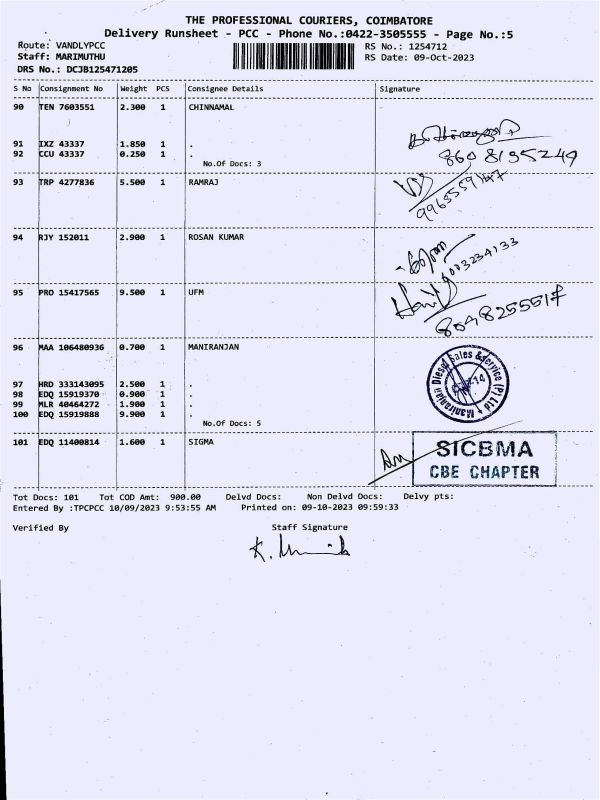 THE PROFESSIONAL COURIERS, COIMBATORE
Delivery Runsheet - PCC - Phone No.:0422-3505555 - Page No.:5
Route: VANDLYPCC RS No.: 1254712
Staff: MARIMUTHU RS Date: 09-Oct-2023
DRS No.: DCJB125471205
S No Consignment No Weight PCS Consignee Details Signature
90 TEN 7603551 2.300 1 CHINNAMAL
91 IXZ 43337 1.850 1 .
92 CCU 43337 0.250 1 .
860 8195249
No.Of Docs: 3
93 TRP 4277836 5.500 1 RAMRAJ
9965559147
94 RJY 152011 2.900 1 ROSAN KUMAR
6003234133
95 PRO 15417565 9.500 1 UFM
96 MAA 106480936 0.700 1 MANIRANJAN
Maniranjan Diesel Sales & Service (P) Ltd
97 HRD 333143095 2.500 1 .
98 EDQ 15919370 0.900 1 .
99 MLR 40464272 1.900 1 .
100 EDQ 15919888 9.900 1 .
No.Of Docs: 5
101 EDQ 11400814 1.600 1 SIGMA
SICBMA
CBE CHAPTER
Tot Docs: 101 Tot COD Amt: 900.00 Delvd Docs: Non Delvd Docs: Delvy pts:
Entered By :TPCPCC 10/09/2023 9:53:55 AM Printed on: 09-10-2023 09:59:33
Verified By Staff Signature